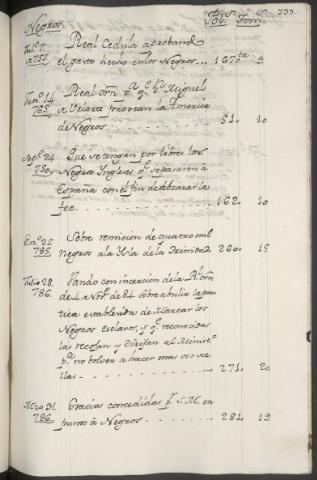 Negros
Fol.s Tom.s
233
Jul.o 7 Real Cedula aproband.
de 757. el gasto hecho en los Negros... 167 bta 9
Jun.o 14 Real orn p.a q.e Dn Miguel
765. de Uriarte provean la America
de Negros 51. 10
Ag.o 24 Que se tengan por libres los
750. Negros Ingleses q.e se pasaren à
España con el fin de abrazar la
fee. 162. 10
En.o 25. Sobre remision de quatro mil
785. negros a la Ysla de la Trinidad. 260. 15
Julio 28. Vando con insercion de la R.l orn
786. de 4 de Nov.e de 84 sobre abolir la prac
tica establecida de Marcar los
Negros Esclavos, y q.e reconocidas
las recojan y dirijan al Minist.o
p.a no bolver a hacer mas uso de
llas 271. 20
Gracias concedidas p.r S.M. en
786. punto à Negros 281. 19